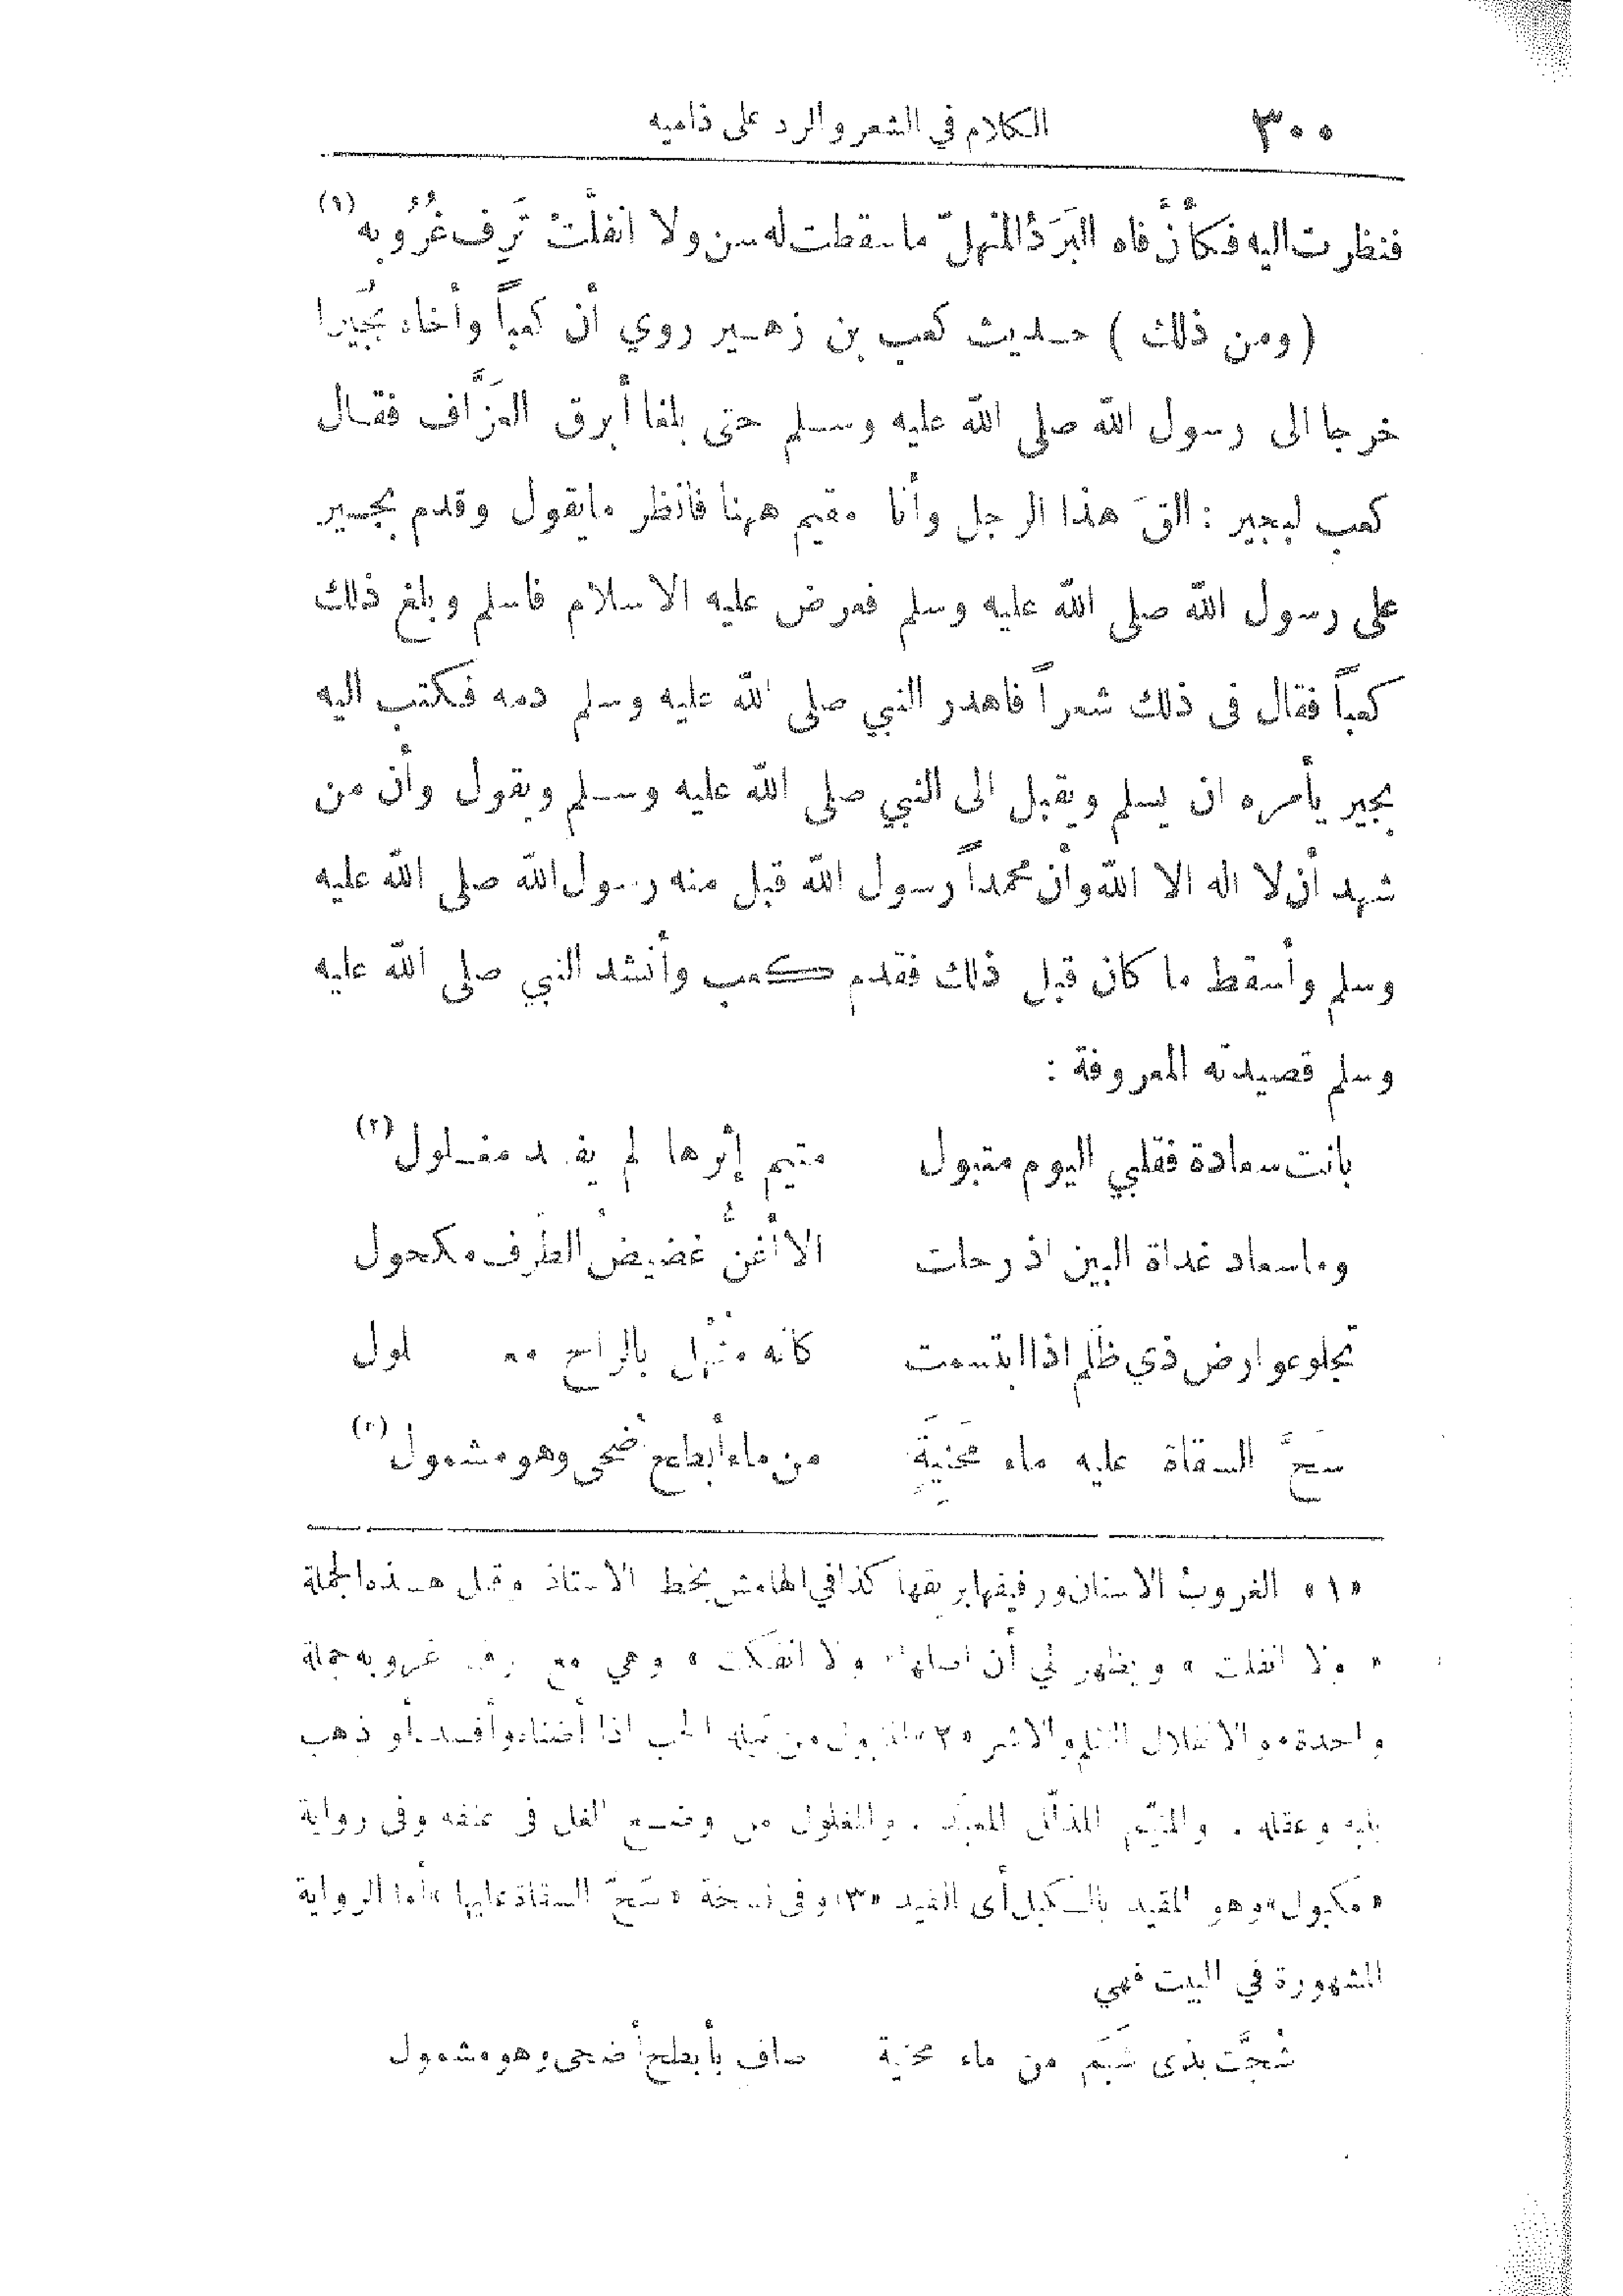 ٣٠٠ الكلام في الشعر والرد على ذاميه
فنظرت اليه فكأنَّ فاه البَرَدُ المنهلّ ماسقطت له سن ولا انفلَّت تَرِف غُرُوبه (١)
( ومن ذلك ) حديث كعب بن زهير روي أن كعباً وأخاه بُجيرا
خرجا الى رسول الله صلى الله عليه وسلم حتى بلغا أبرق العزَّاف فقال
كعب لبجير : القَ هذا الرجل وأنا مقيم ههنا فانظر مايقول وقدم بجير
على رسول الله صلى الله عليه وسلم فعرض عليه الاسلام فاسلم وبلغ ذلك
كعباً فقال فى ذلك شعراً فاهدر النبي صلى الله عليه وسلم دمه فكتب اليه
بجير يأمره ان يسلم ويقبل الى النبي صلى الله عليه وسلم ويقول وأن من
شهد أن لا اله الا الله وأن محمداً رسول الله قبل منه رسول الله صلى الله عليه
وسلم وأسقط ما كان قبل ذلك فقدم كعب وأنشد النبي صلى الله عليه
وسلم قصيدته المعروفة :
بانت سعادة فقلبي اليوم متبول متيم إثرها لم يفد مغلول (٢)
وماسعاد غداة البين اذ رحلت الا أغنُّ غضيضُ الطَرف مكحول
تجلو عوارض ذي ظَلم اذا ابتسمت كأنه منهل بالراح معلول
سَحَّ السقاة عليه ماء مَحْنِيَةٍ من ماء أبطح أضحى وهو مشمول (٣)
«١» الغروبُ الاسنان ورفيفها بريقها كذا في الهامش بخط الاستاذ وقبل هذه الجملة
« ولا انفلت » ويظهر لي أن اصلها « ولا انفكت » وهي مع ترف غروبه جملة
واحدة والانفلال الثلم والاشر «٢» المتبول من تبله الحب اذا أضناه وأفسده أو ذهب
بلبه وعقله . والمتيَّم المذلَّل المعبَّد . والمغلول من وضع الغل في عنقه وفى رواية
« مكبول » وهو المقيد بالكبل أى القيد «٣» وفى نسخة « سَحَّ السقاة عليها » أما الرواية
المشهورة في البيت فهي
شُجَّت بذى شَبَم من ماء محنية صاف بأبطح أضحى وهو مشمول